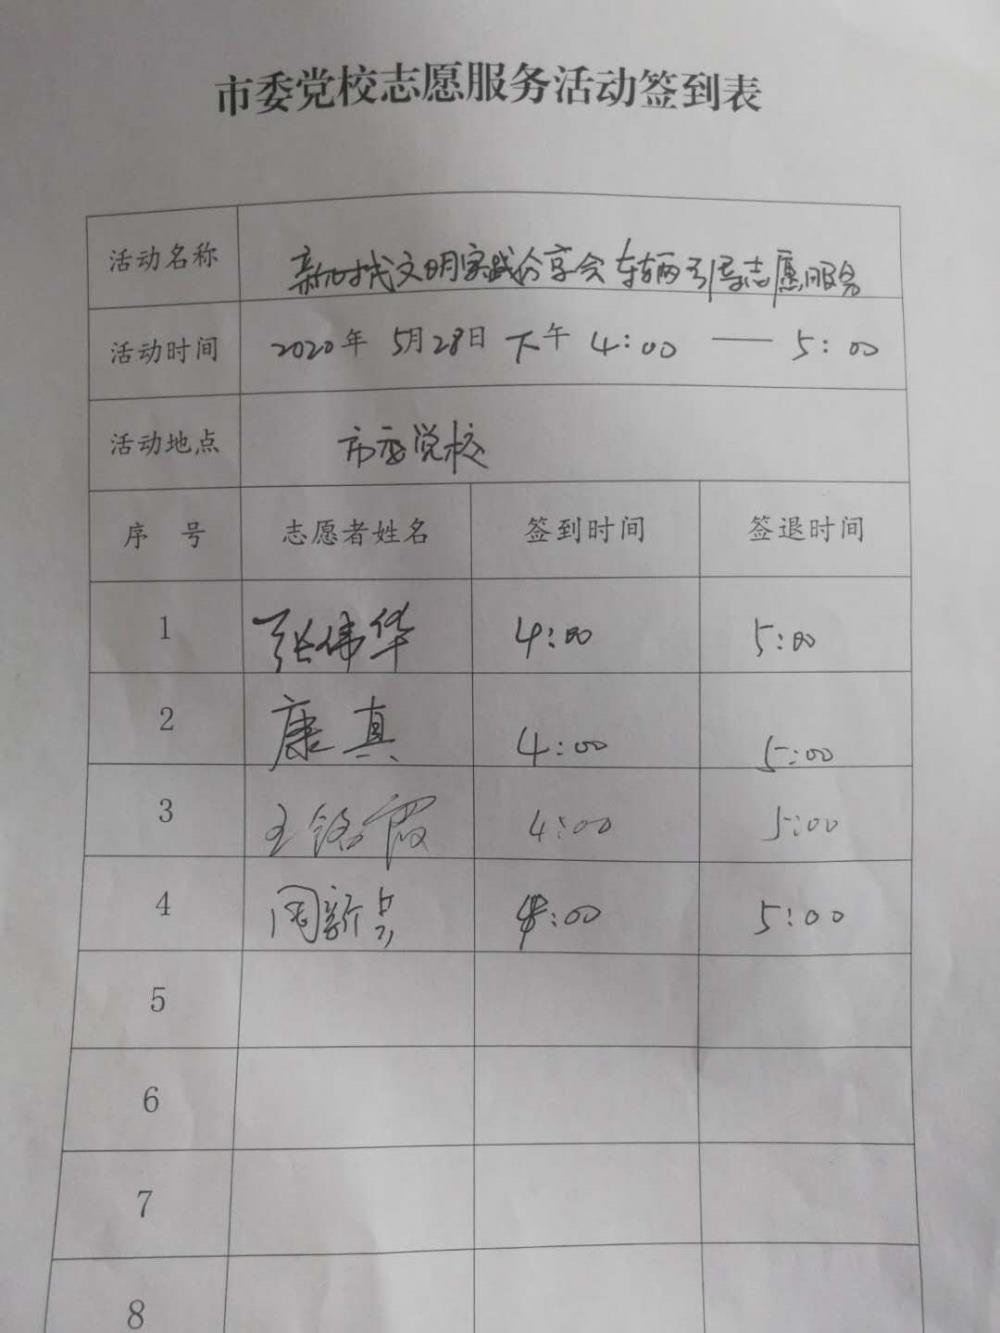 市委党校志愿服务活动签到表
活动名称 新时代文明实践分享会车辆引导志愿服务
活动时间 2020年 5月28日 下午 4:00 — 5:00
活动地点 市委党校
序 号 志愿者姓名 签到时间 签退时间
1 张伟华 4:00 5:00
2 康真 4:00 5:00
3 王铭霞 4:00 5:00
4 周新 4:00 5:00
5
6
7
8